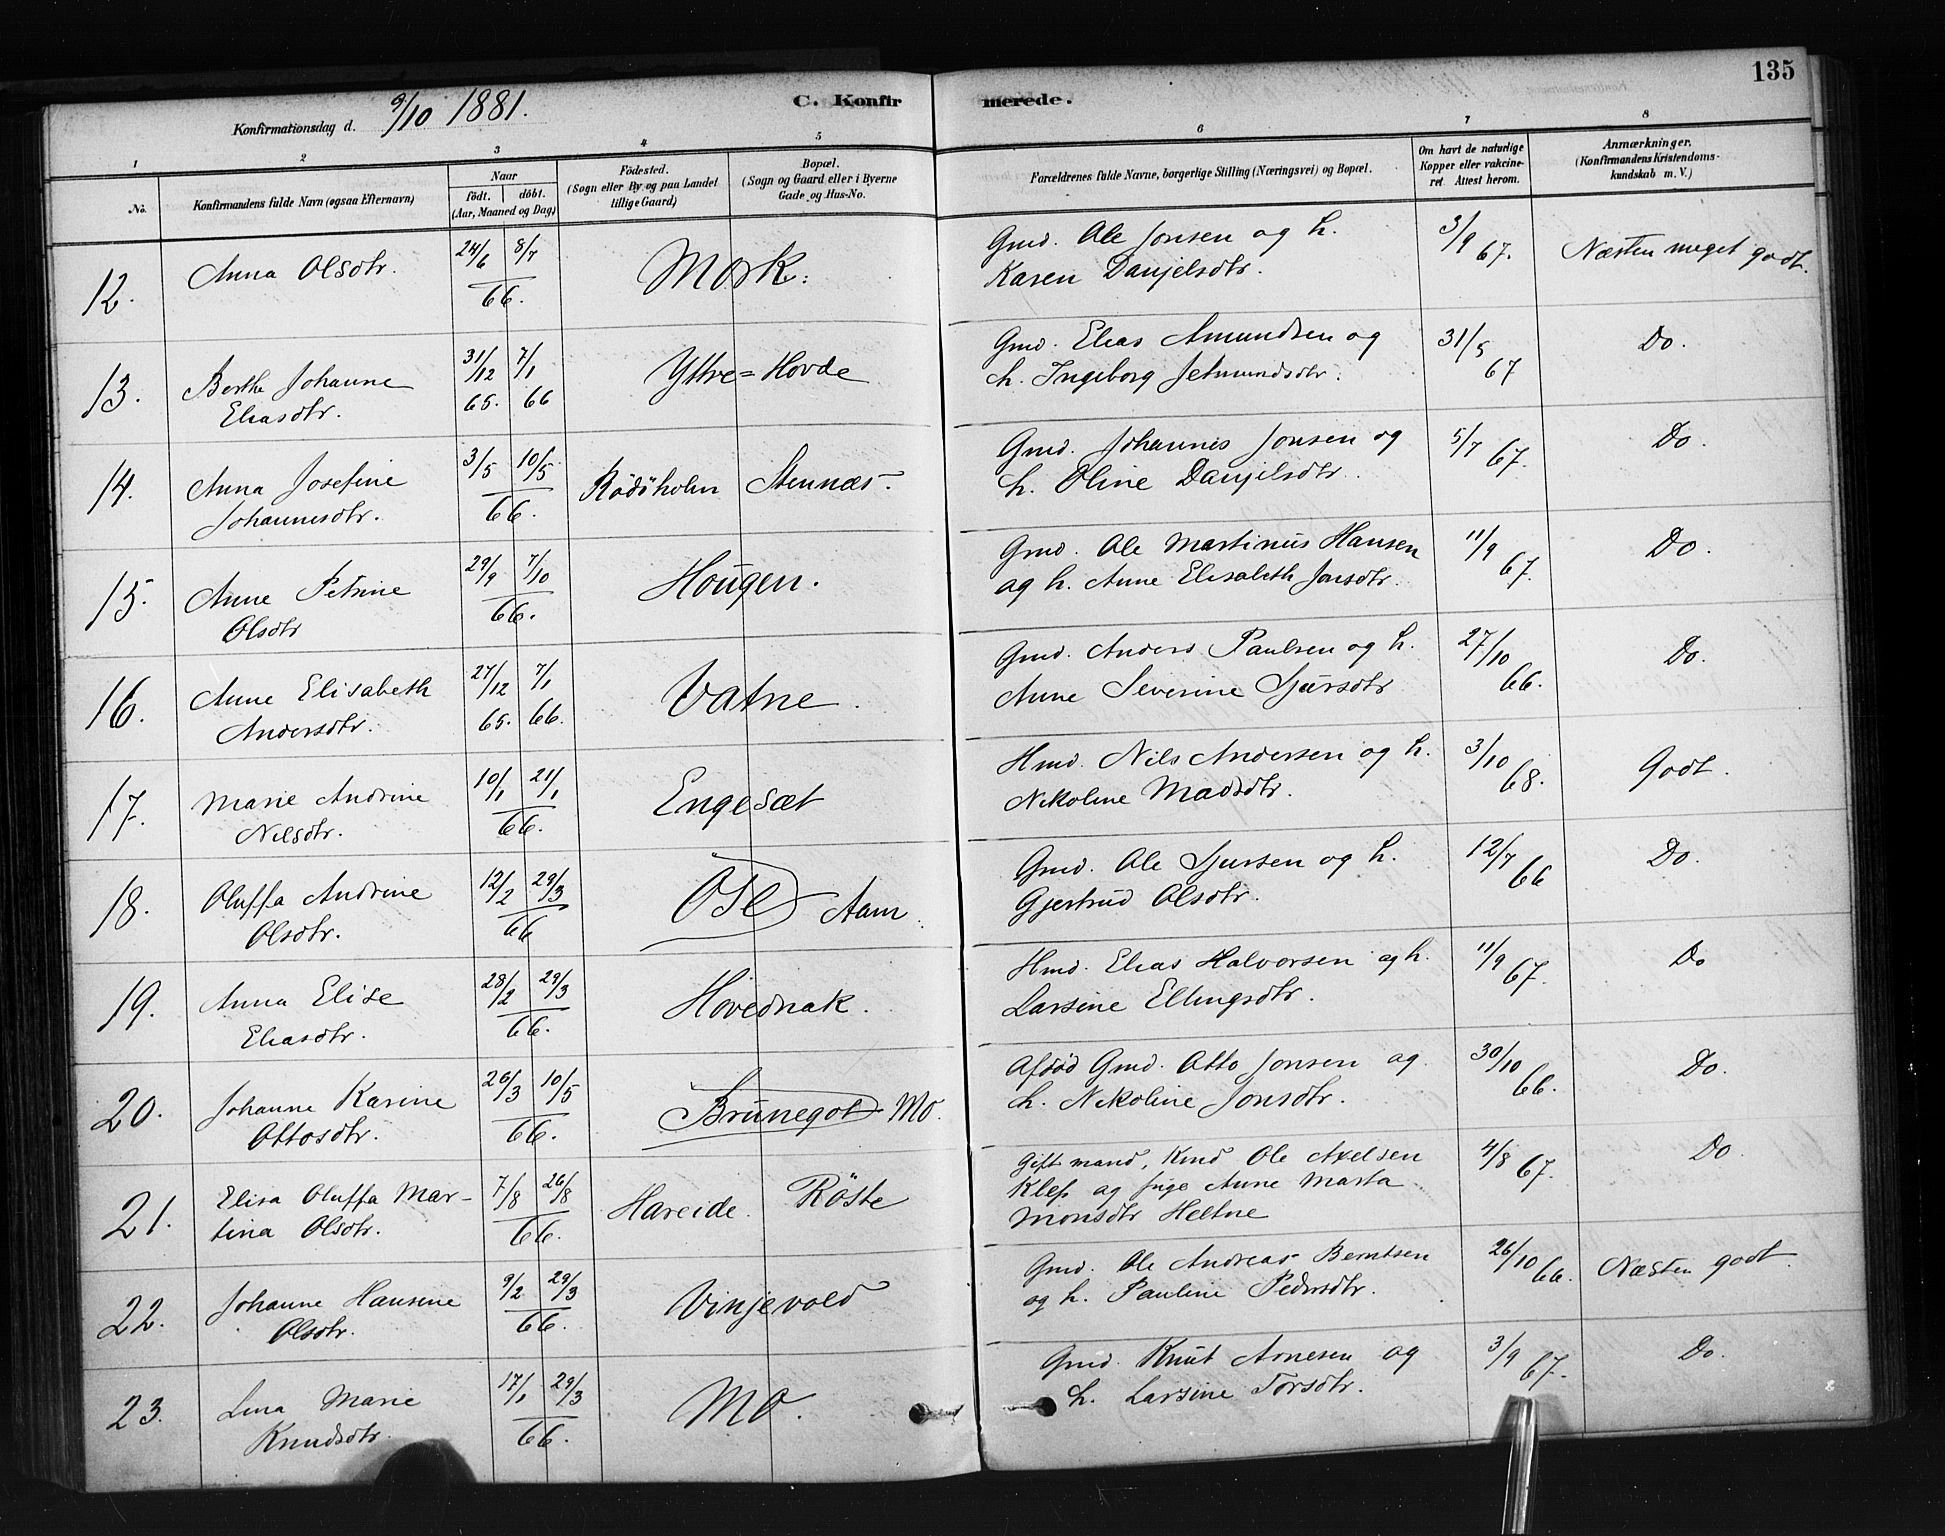 135
Konfirmationsdag d. 9/10 1881.
C. Konfirmerede.
1 2 3 4 5 6 7 8
No.
Konfirmandens fulde Navn (ogsaa Efternavn)
Naar
født. døbt.
(Aar, Maaned og Dag)
Fødested.
(Sogn eller By og paa Landet
tillige Gaard)
Bopæl.
(Sogn og Gaard eller i Byerne
Gade og Hus-No.
Forældrenes fulde Navne, borgerlige Stilling (Næringsvei) og Bopæl.
Om havt de naturlige
Kopper eller vakcine-
ret. Attest herom.
Anmærkninger.
(Konfirmandens Kristendoms-
kundskab m. V.)
12. Anna Olsdtr. 24/6 8/7 66. Mork. Gmd. Ole Jonsen og h. 3/9 67. Næsten meget godt.
Karen Danjelsdtr.
13. Berthe Johanne 31/12 65. 7/1 66 Yttre=Hovde Gmd. Elias Amundsen og 31/5 67 Do.
Eliasdtr. h. Ingeborg Jetmundsdtr.
14. Anna Josefine 3/5 10/5 66. Rødøholm Stennæs. Gmd. Johannes Jonsen og 5/7 67. Do.
Johannesdtr. h. Oline Danjelsdtr.
15. Anne Petrine 29/9 7/10 66. Hougen. Gmd. Ole Martinus Hansen 11/9 67. Do.
Olsdtr og h. Anne Elisabeth Jonsdtr.
16. Anne Elisabeth 27/12 65. 7/1 66. Vatne. Gmd. Anders Paulsen og h. 27/10 66. Do.
Andersdtr. Anne Severine Sjursdtr
17. Marie Andrine 10/1 21/1 66. Engesæt Hmd. Nils Andersen og h. 3/10 68. Godt.
Nilsdtr. Nikoline Madsdtr.
18. Oluffa Andrine 12/2 29/3 66 Ose Aam. Gmd. Ole Sjursen og h. 12/7 66 Do.
Olsdtr. Gjertrud Olsdtr.
19. Anna Elise 28/2 29/3 66. Hovednak. Hmd. Elias Halvorsen og h. 11/9 67. Do
Eliasdtr. Larsine Ellingsdtr.
20. Johanne Karine 26/3 10/5 66. Brunegot Mo. Afdød Gmd. Otto Jonsen og 30/10 66. Do.
Ottosdtr. h. Nikoline Jonsdtr.
21. Elisa Oluffa Mar- 7/8 26/8 66. Hareide. Røste Gift mand, Kmd Ole Axelsen 4/8 67. Do
tina Olsdtr. Klep og pige Anne Marta
Monsdtr Heltne
22. Johanne Hansine 9/2 29/3 66. Vinjevold Gmd. Ole Andreas Berntsen 26/10 66. Næsten godt.
Olsdtr. og h. Pauline Pedersdtr.
23. Lina Marie 17/1 29/3 66. Mo. Gmd. Knut Arnesen og 3/9 67. Do.
Knudsdtr. h. Larsine Torsdtr.